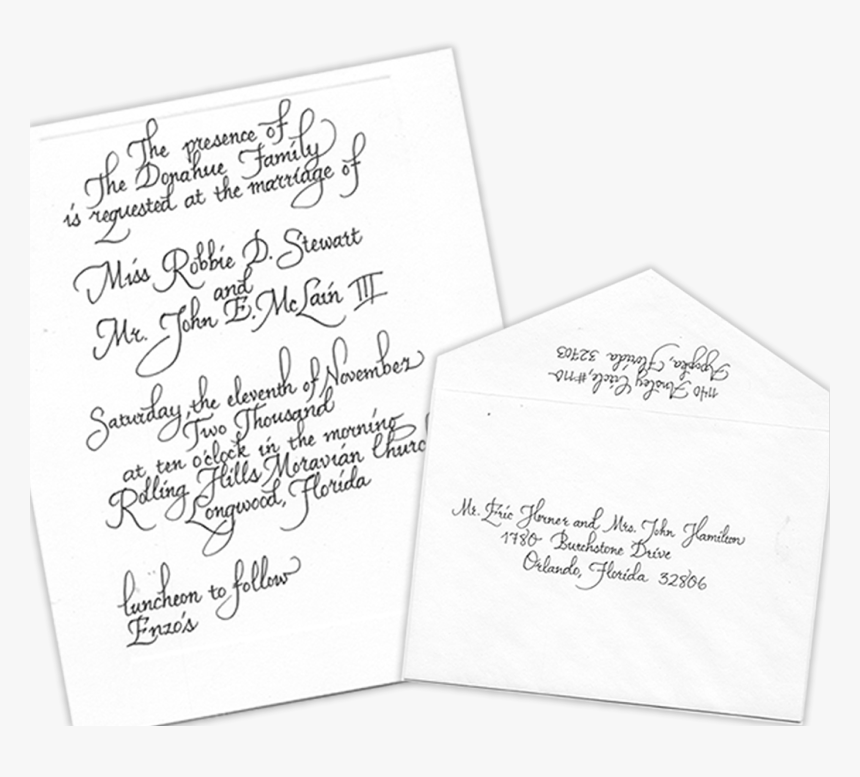 The presence of
The Donahue Family
is requested at the marriage of
Miss Robbie D. Stewart
and
Mr. John E. McLain III
Saturday, the eleventh of November
Two Thousand
at ten o'clock in the morning
Rolling Hills Moravian Churc
Longwood, Florida
luncheon to follow
Enzo's
1140 Ansley Circle, #110
Apopka, Florida
32703
Mr. Eric Horner and Mrs. John Hamilton
1780 Burchstone Drive
Orlando, Florida 32806